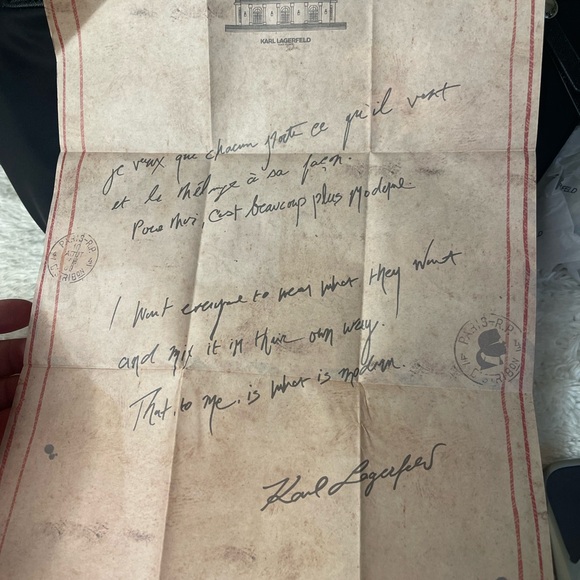 KARL LAGERFELD
je veux que chacun porte ce qu'il veut
et le mélange à sa façon.
Pour moi, c'est beaucoup plus moderne.
PARIS-R.P.
I want everyone to wear what they want
and mix it in their own way.
PARIS-R.P.
That, to me, is what is modern.
Karl Lagerfeld